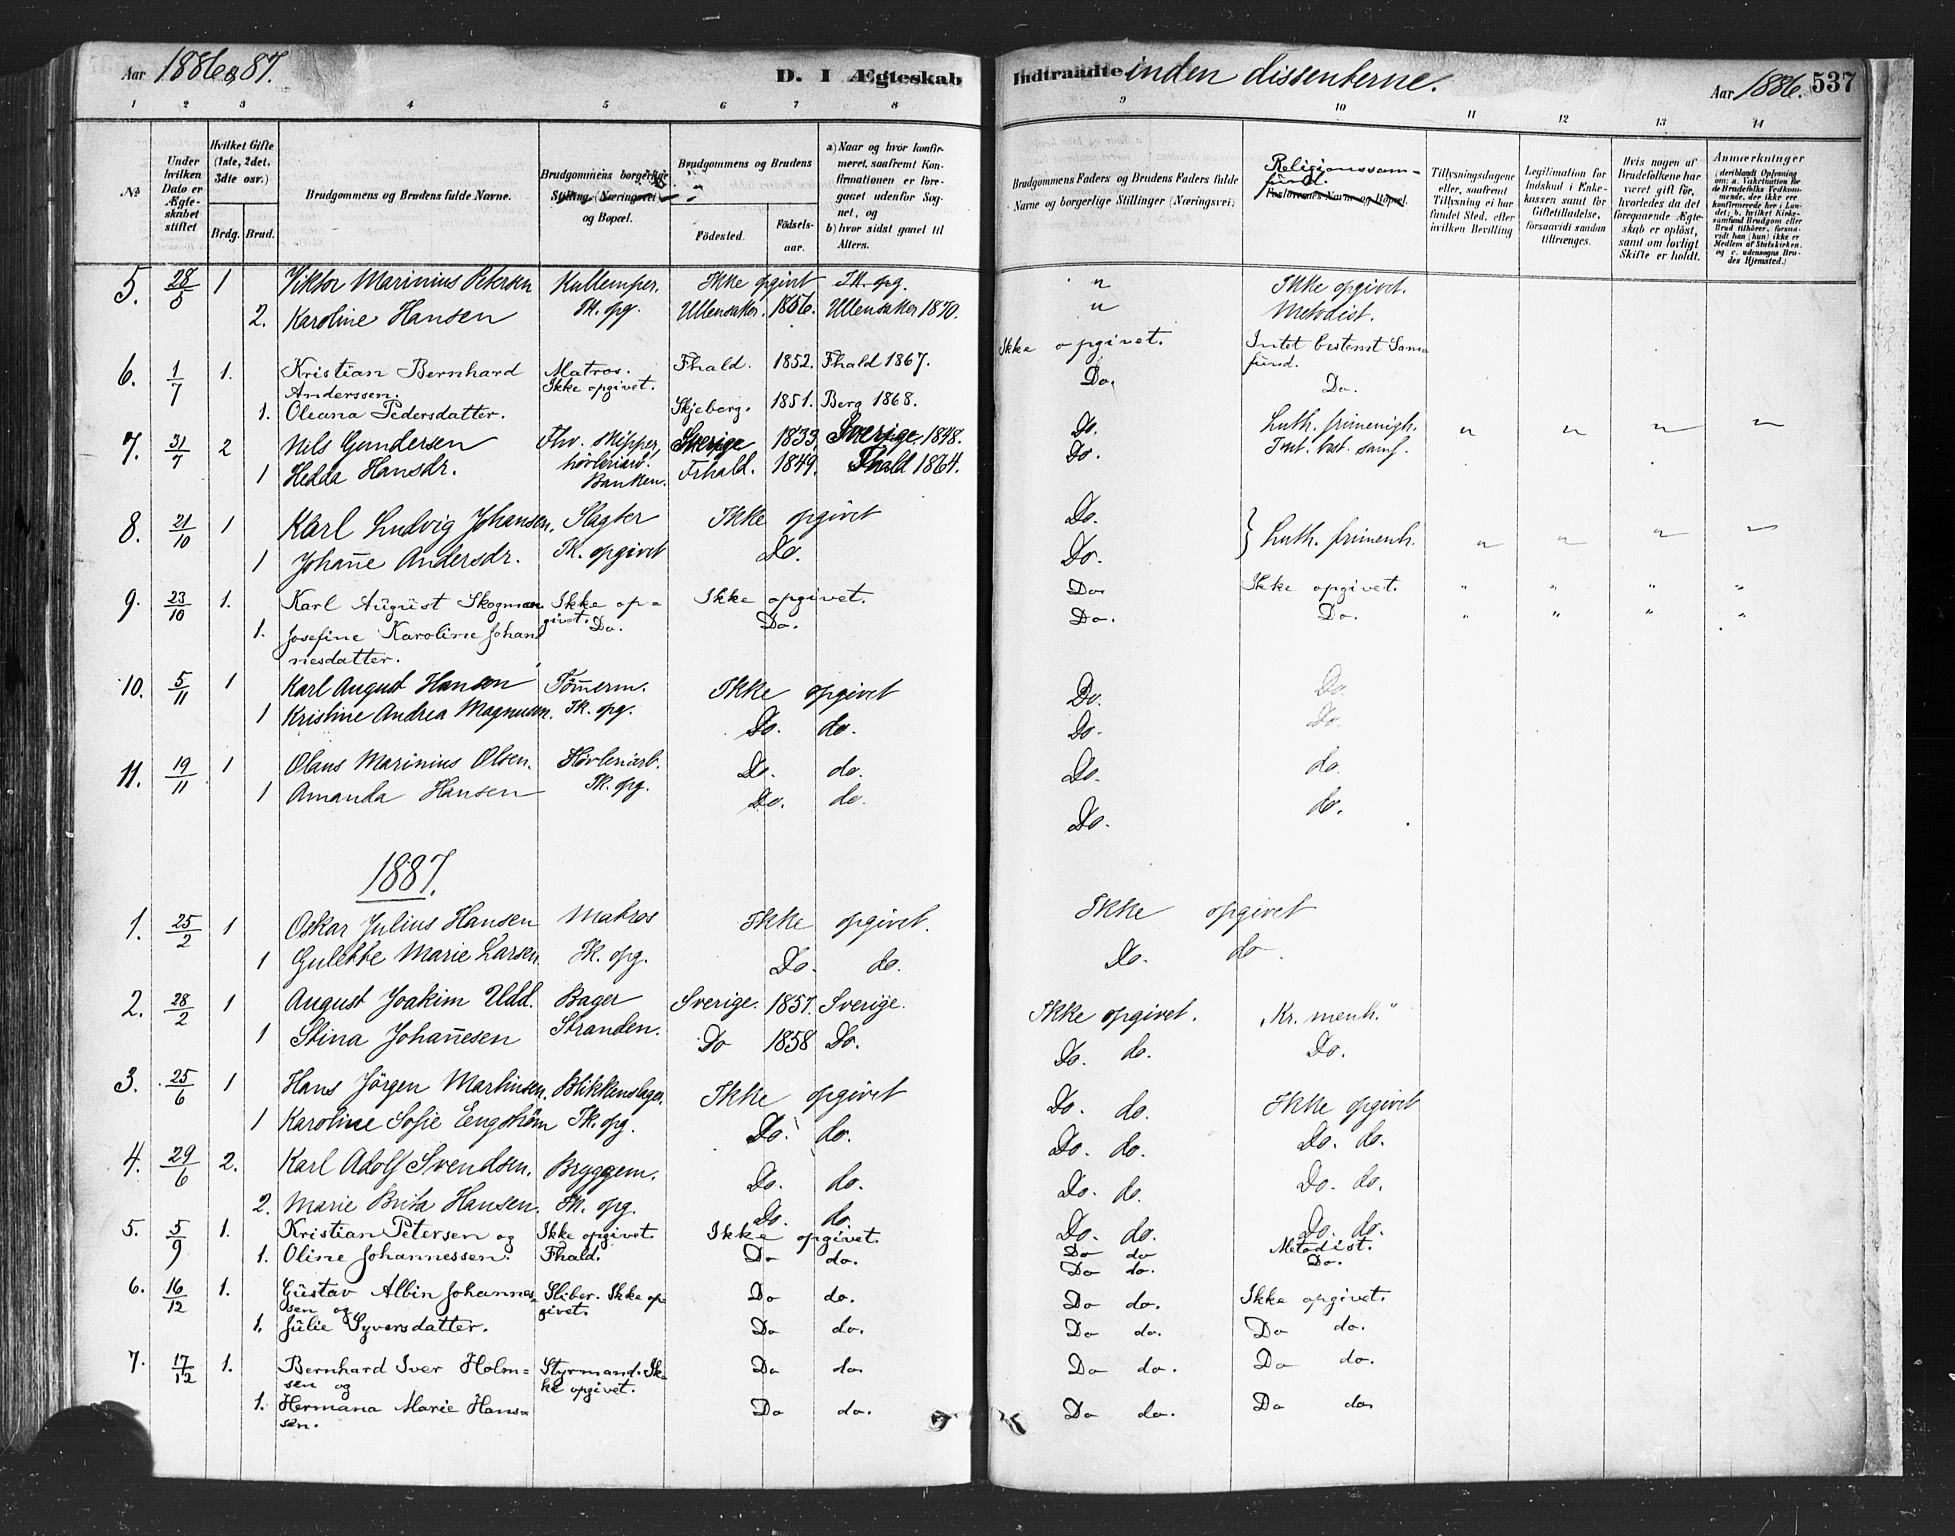 Aar 1886 & 87. D. I Ægteskab
Indtraadte inden dissenterne. Aar 1886. 537
1 2 3 4 5 6 7 8
9 10 11 12 13 14
No
Under hvilken Dato er Ægteskabet stiftet
Hvilket Gifte (1ste, 2det, 3die osv.)
Brdg. Brud.
Brudgommens og Brudens fulde Navne.
Brudgommens borgerlige Stilling (Næringsvei) og Bopæl.
Brudgommens og Brudens
Fødested. Fødselsaar.
a) Naar og hvor konfirmeret, saafremt Konfirmationen er foregaaet udenfor Sognet, og
b) hvor sidst gaaet til Alters.
Brudgommens Faders og Brudens Faders fulde Navne og borgerlige Stillinger (Næringsvei)
Religionssamfund.
Forlovernes Navne og Bopæl.
Tillysningsdagene eller, saafremt Tillysning ei har fundet Sted, efter hvilken Bevilling
Legitimation for Indskud i Enkekassen samt for Giftetilladelse, forsaavidt saadan tiltrænges.
Hvis nogen af Brudefolkene har været gift før, hvorledes da det foregaaende Ægteskab er opløst, samt om lovligt Skifte er holdt.
Anmærkninger
5. 28/5 1 Viktor Marinius Petersen Ikke opgivet Ik. opg. " Ikke opgivet.
2. Karoline Hansen Ik. opg. Ullensaker. 1856. Ullensaker 1870. " Metodist.
6. 1/7 1. Kristian Bernhard Anderssen. Matros. Ikke opgivet. Fhald. 1852. Fhald 1867. Ikke opgivet. Intet bestemt Samfund.
1. Oleana Pedersdatter. Skjeberg. 1851. Berg 1868. Do. Do.
7. 31/7 2 Nils Gundersen Fhv. Skipper, Sverige 1833. Sverige 1848. Do. Luth. frimenigh. " " " "
1 Hedda Hansdr. høvleriarb. Banken. Frhald. 1849. Fhald 1864. Do. Int. bst. samf.
8. 21/10 1 Karl Ludvig Johansen. Slagter Ikke opgivet Do. } Luth. frimenh. " " " "
1 Johan̄e Andersdr. Ik. opgivet Do. Do.
9. 23/10 1. Karl August Skogman Ikke opgivet. Ikke opgivet. Do. Ikke opgivet. " " " "
1. Josefine Karoline Johannesdatter. Do. Do. Do. Do. " " " "
10. 5/11 1 Karl August Hansen Töm̄erm. Ikke opgivet Do. Do.
1 Kristine Andrea Magnusen. Ik. opg. Do. do. Do. Do.
11. 19/11 1 Olaus Marinius Olsen. Høvleriarb. Do. do. Do. do.
1 Amanda Hansen Ik. opg. Do. do. Do. do.
1887.
1. 25/2 1 Oskar Julius Hansen Matros Ikke opgivet. Ikke opgivet
1 Gulette Marie Larsen. Ik. opg. Do. do. Do. do.
2. 28/2 1 August Joakim Udd. Bager Sverige. 1857. Sverige. Ikke opgivet. "Kr. menh."
1 Stina Johan̄esen Stranden. Do 1858 Do. Do. do. Do.
3. 25/6 1 Hans Jörgen Martinsen. Blikkenslager. Ikke opgivet Do. do. Ikke opgivet
1 Karoline Sofie Engström Ik. opg. Do. do. Do. do. Do. do.
4. 29/6 2. Karl Adolf Svendsen. Bryggem. Do. do. Do. do. Do. do.
2. Marie Brita Hansen. Ik. opg. Do. do. Do. do. Do. do.
5. 5/9 1. Kristian Petersen og Ikke opgivet. Ikke opgivet. Do do Metodist.
1. Oline Johannessen. Fhald. Do do. Do do. Do.
6. 16/12 1. Gustav Albin Johannessen og Sliber. Ikke opgivet. Do do. Do do. Ikke opgivet.
1. Julie Syversdatter. Do do. Do do. Do do.
7. 17/12 1. Bernhard Iver Holmsen og Styrmand. Ikke opgivet. Do do Do do. Do do.
1. Hermana Marie Hanssen. Do do. Do do. Do do